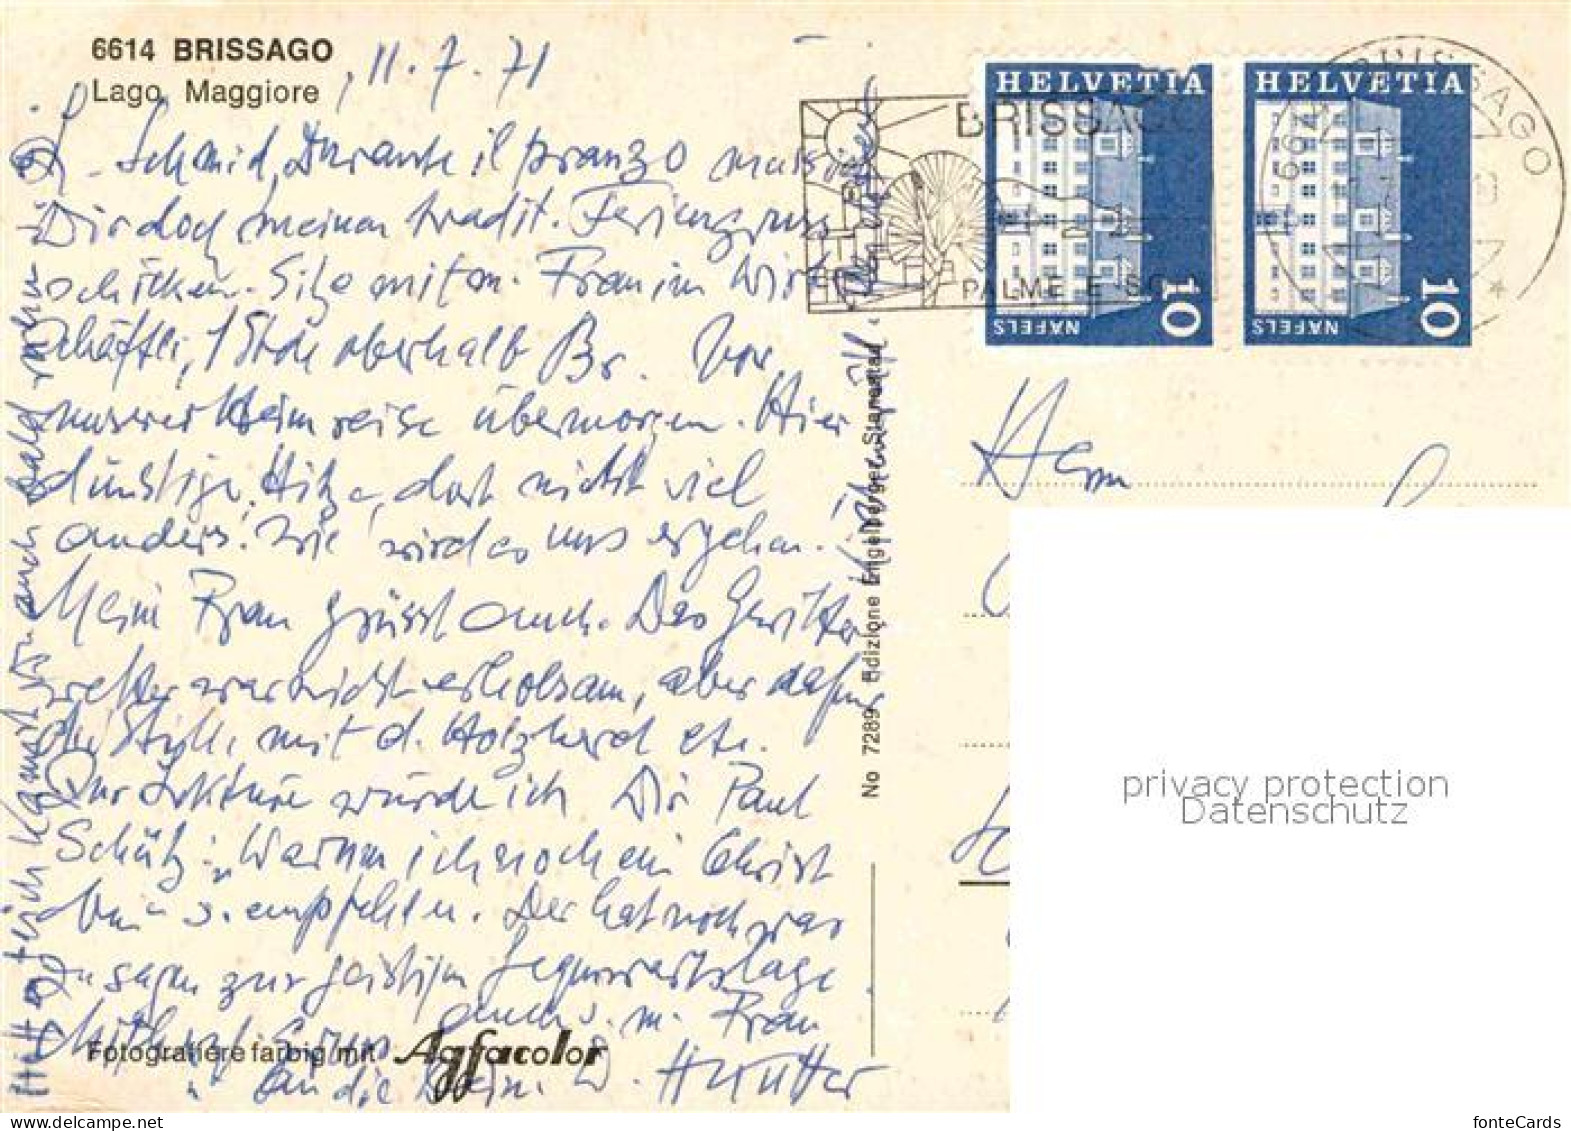 6614 BRISSAGO
Lago Maggiore
, 11. 7. 71
L. Schmid, Durante il pranzo muss ich
Dir doch meinen tradit. Feriengruss
schicken. Sitze mit m. Frau im Wirt-
schäftli, 1 Stde oberhalb Br. Vor
unserer Heimreise übermorgen. Hier
dunstige Hitze, dort nicht viel
anders. Wie wird es uns ergehen.
Meine Frau grüsst auch. Das Gewitter
wetter war nicht erholsam, aber dafür
die Stille mit d. Holzherd etc.
Zur Lektüre würde ich Dir Paul
Schütz: „Warum ich noch ein Christ
bin" s. empfehlen. Der hat noch was
zu sagen zur geistigen Gegenwartslage
Gruss auch v. m. Frau
an die Dein. W.
Hoffentlich kannst Du auch bald
HELVETIA
10
NÄFELS
HELVETIA
10
NÄFELS
BRISSAGO
PALME E SO
6614 BRISSAGO
Herrn
No 7289 Edizione Engelberger Stansstad
Fotografiere farbig mit Agfacolor
privacy protection
Datenschutz
fonteCards